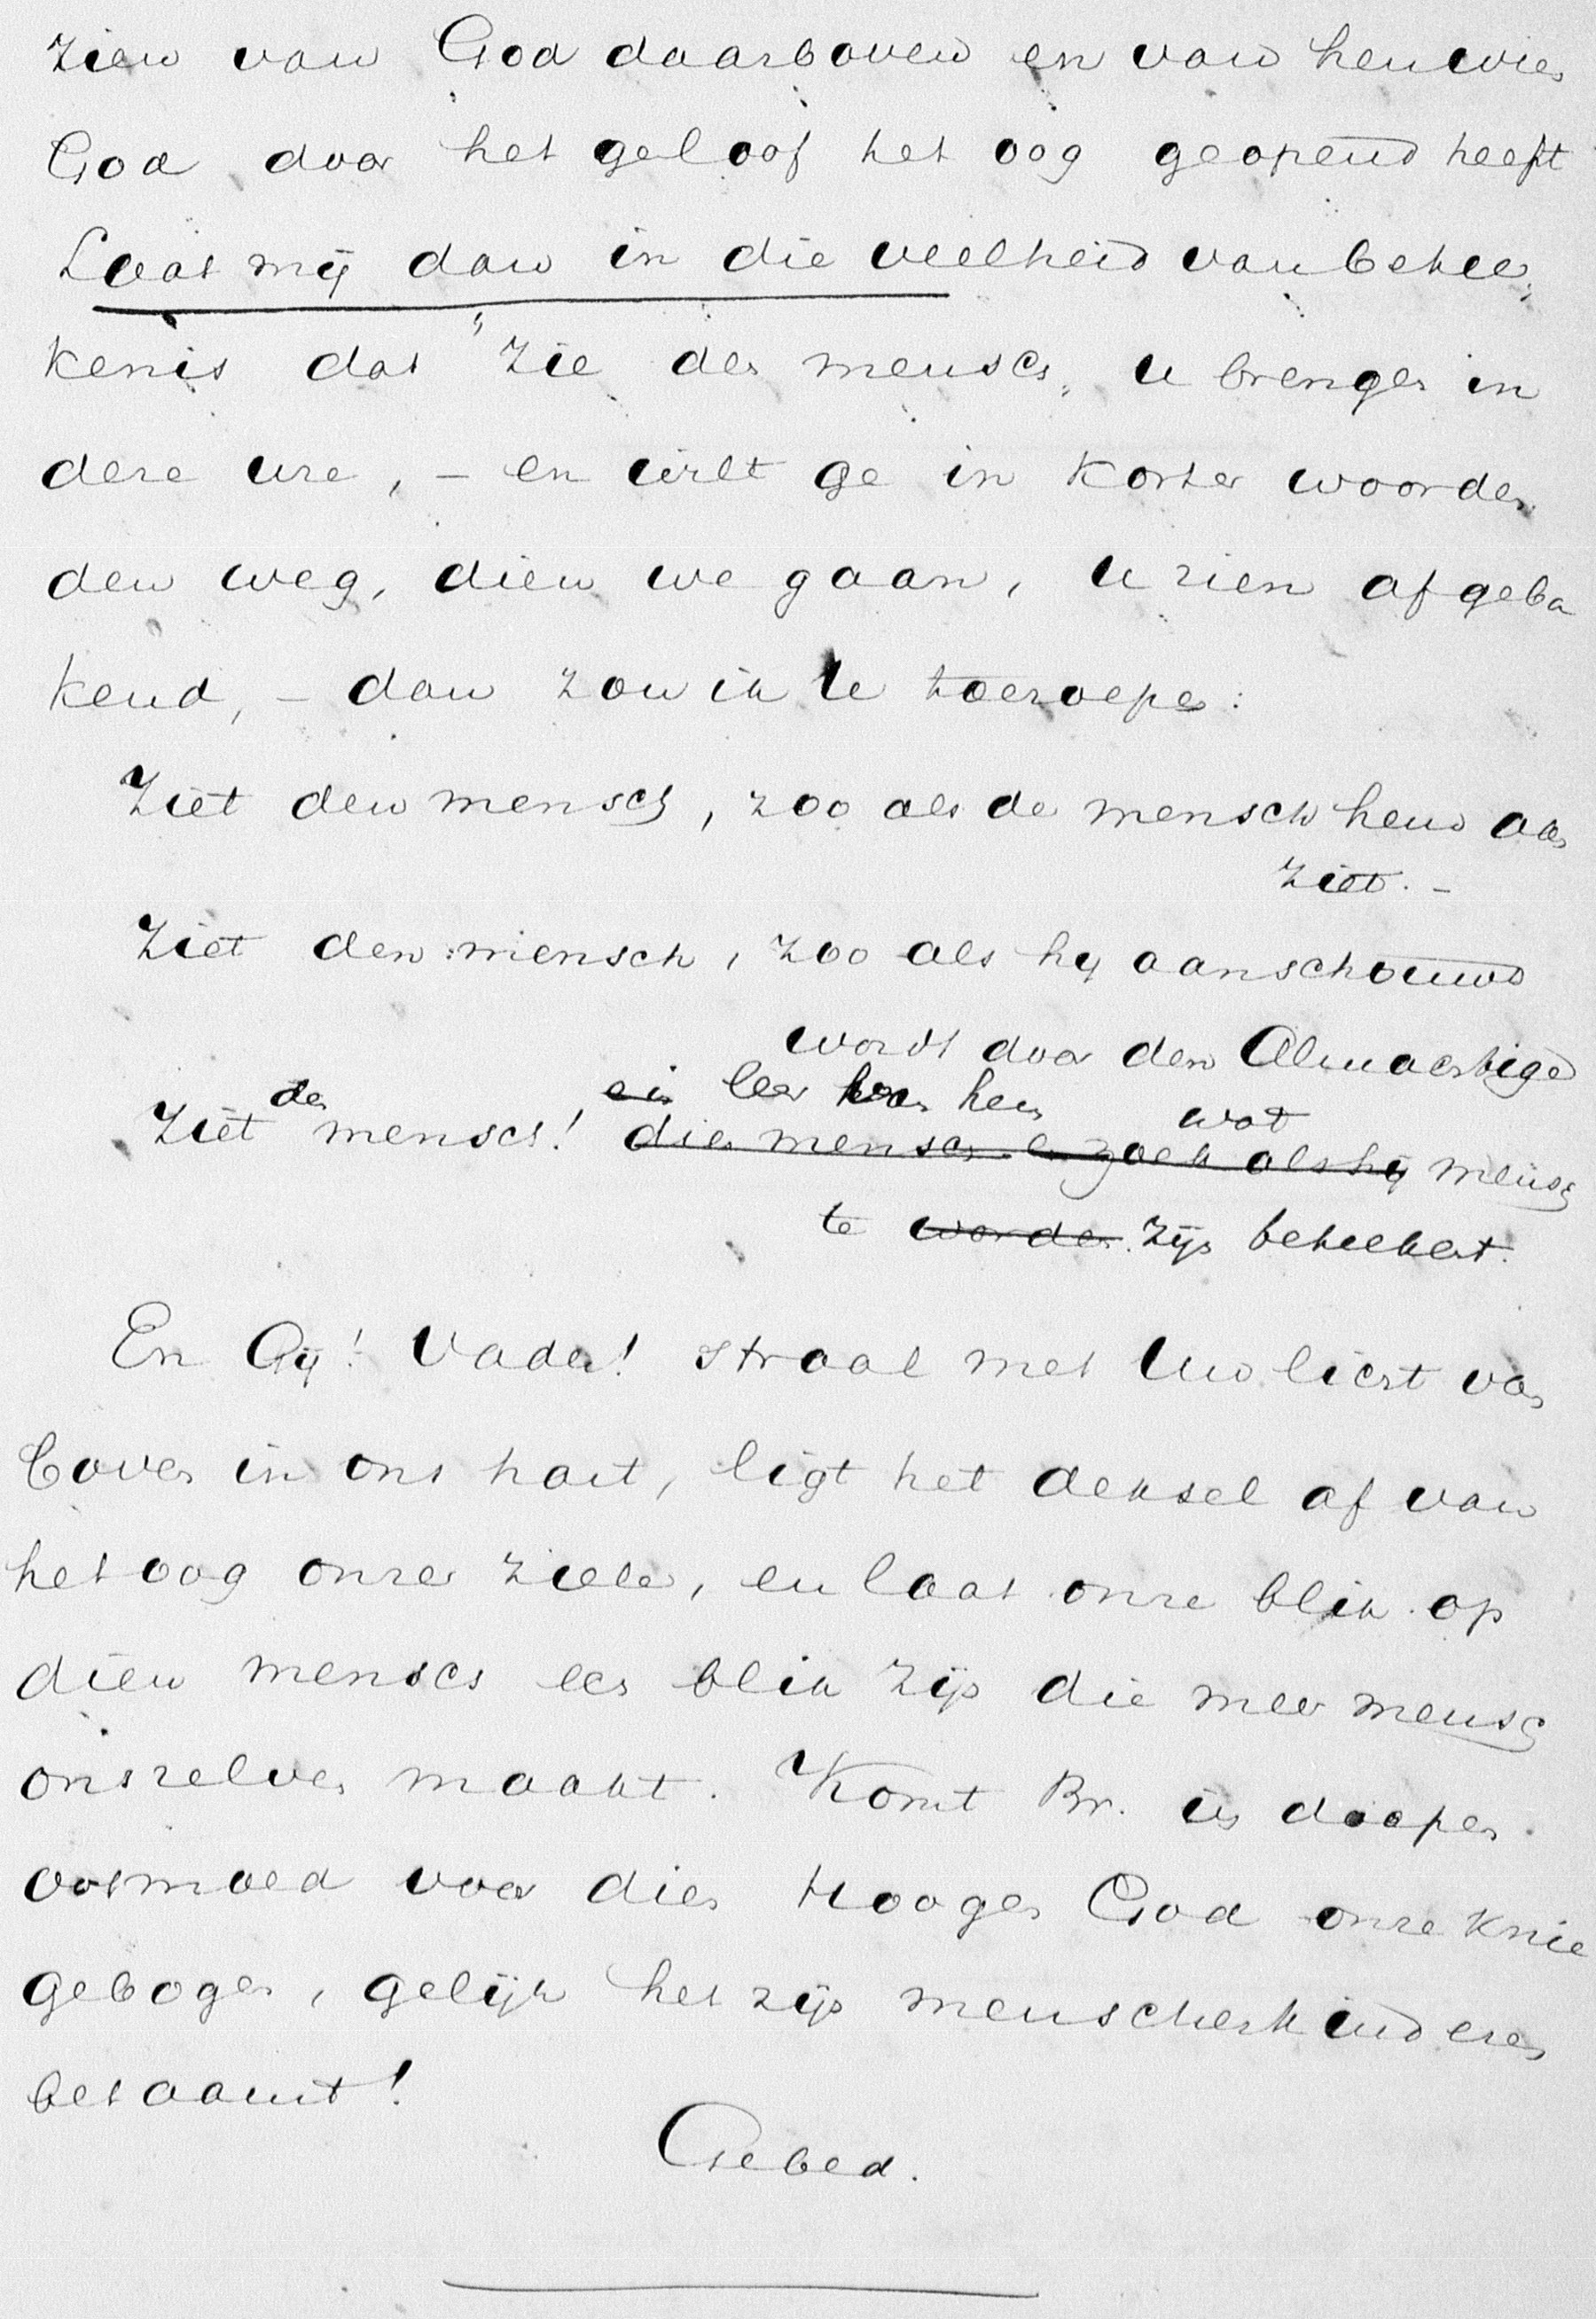 zien van God daarboven en van hen wien
God door het geloof het oog geopend heeft
Laat mij dan in die veelheid van betee„
kenis dat „zie den mensch„ u brengen in
deze ure, – en wilt ge in korter woorden
den weg, dien we gaan, u zien afgeba
kend, – dan zou ik U toeroepen:
Ziet den mensch, zoo als de mensch hem aan
ziet. –
Ziet den mensch, zoo als hij aanschouwd
wordt door den Almachtige
en leer van hem wat
Ziet den mensch! dien mensch en zoek als hij mensch
te worden zijn beteekent.
En Gij! Vader! straal met Uw licht van
boven in ons hart, ligt het deksel af van
het oog onzer ziele, en laat onze blik op
dien mensch een blik zijn die meer mensch
onszelven maakt. Komt Br. in diepen
ootmoed voor dien Hoogen God onze knie
gebogen, gelijk het zijn menschenkinderen
betaamt!
Gebed.